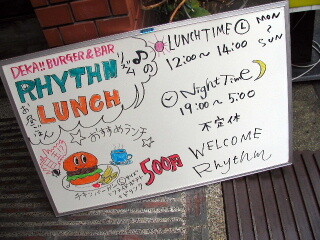 DEKA!! BURGER & BAR
RHYTHMの
お昼ごはん
LUNCH
おすすめランチ
500円
LUNCH TIME
12:00~14:00
MON~SUN
Night Time
19:00~5:00
不定休
WELCOME
Rhythm